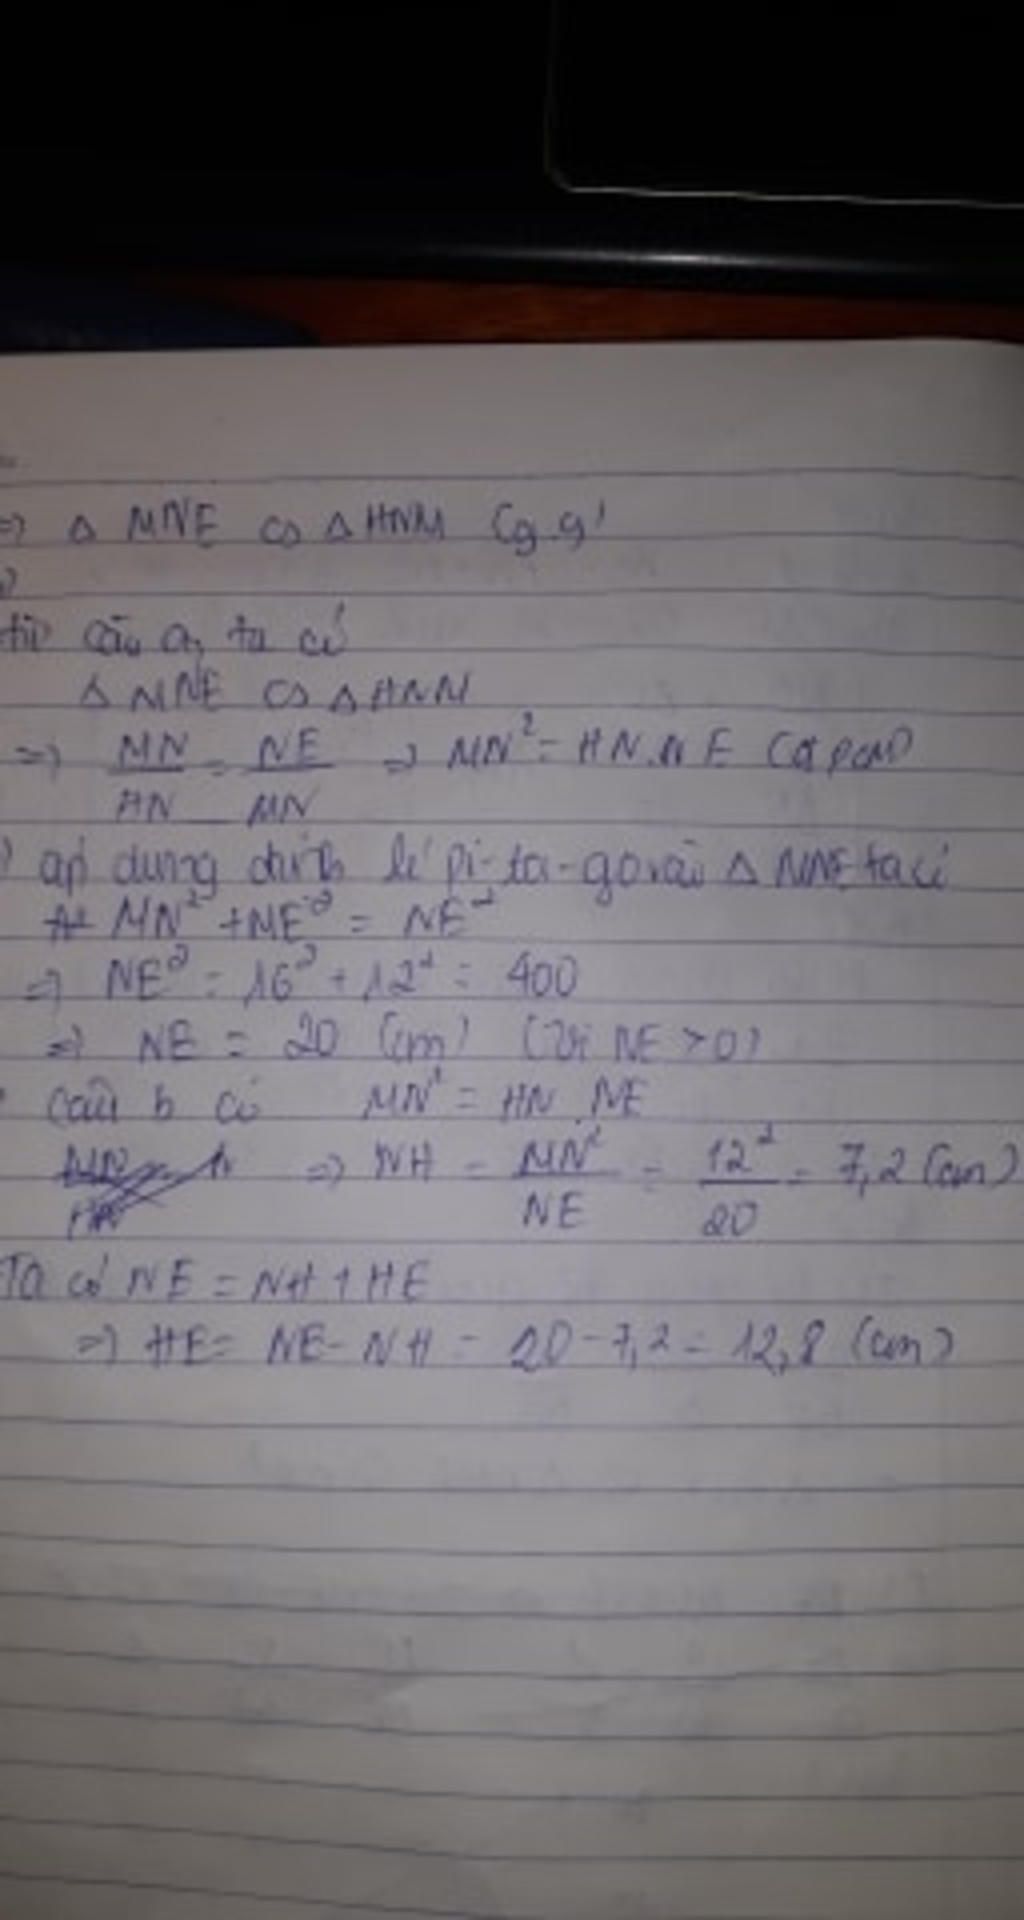 => Δ MNE ∽ Δ HNM (g.g)
từ câu a, ta có
Δ MNE ∽ Δ HNM
=> MN/HN = NE/MN => MN² = HN.NE (đpcm)
áp dụng định lí pi-ta-go vào Δ MNE ta có
MN² + ME² = NE²
=> NE² = 16² + 12² = 400
=> NE = 20 (cm) (Vì NE > 0)
câu b có MN² = HN.NE
=> NH = MN²/NE = 12²/20 = 7,2 (cm)
Ta có NE = NH + HE
=> HE = NE - NH = 20 - 7,2 = 12,8 (cm)